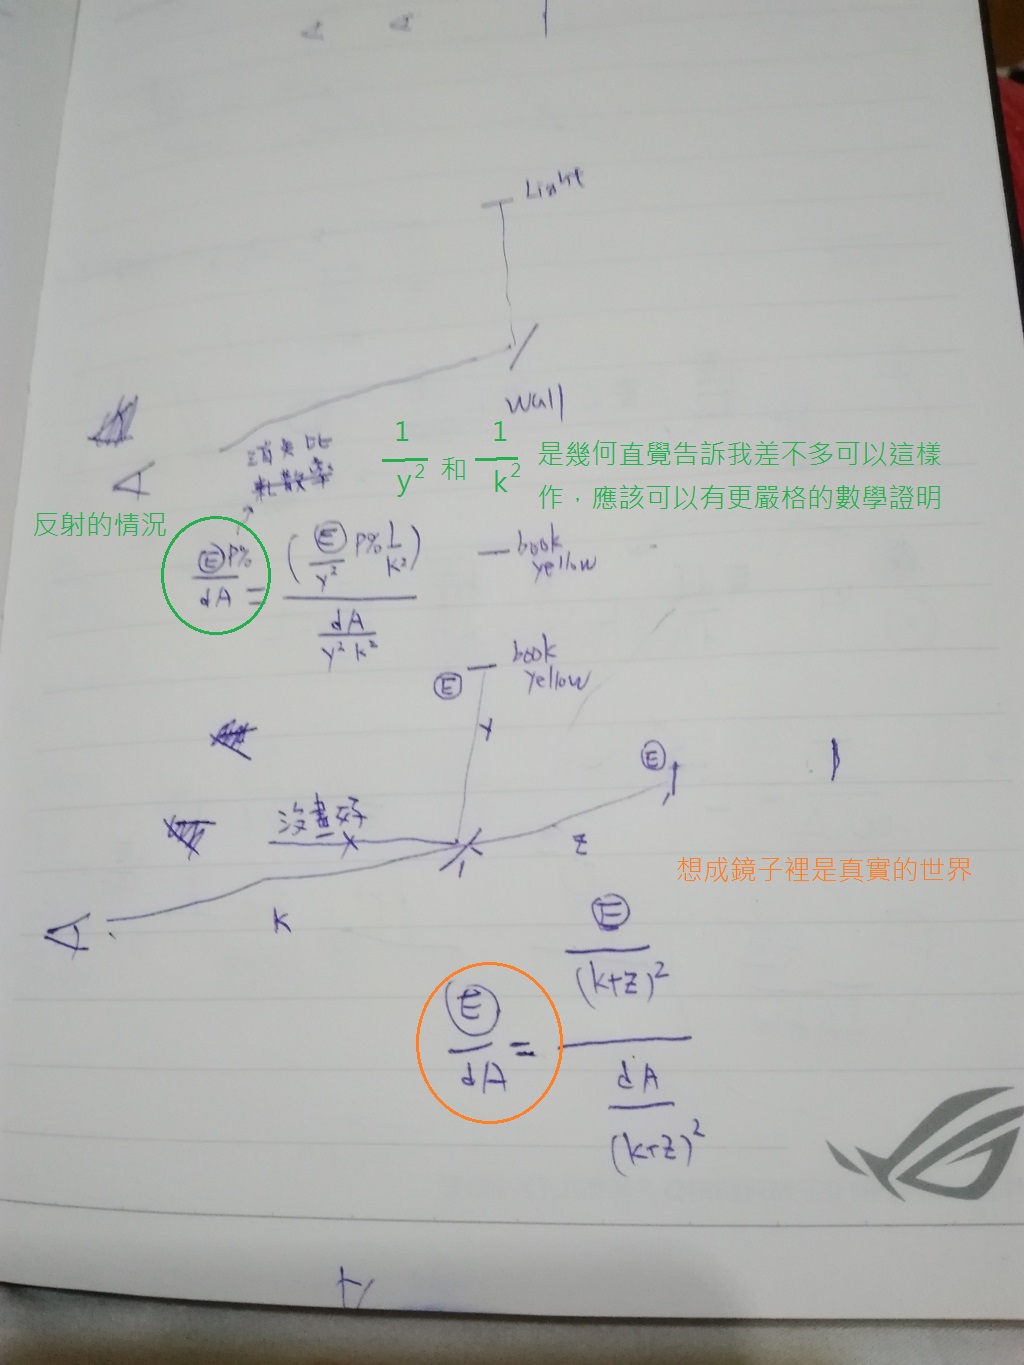 Light
Wall
消失比
粗散率
1/y² 和 1/k² 是幾何直覺告訴我差不多可以這樣
作，應該可以有更嚴格的數學證明
反射的情況
Ⓔ P% / dA = (Ⓔ/y² P% 1/k²) / (dA / y² k²)
book
yellow
book
yellow
Ⓔ
y
Ⓔ
沒畫好
z
想成鏡子裡是真實的世界
k
Ⓔ / dA = (Ⓔ / (k+z)²) / (dA / (k+z)²)